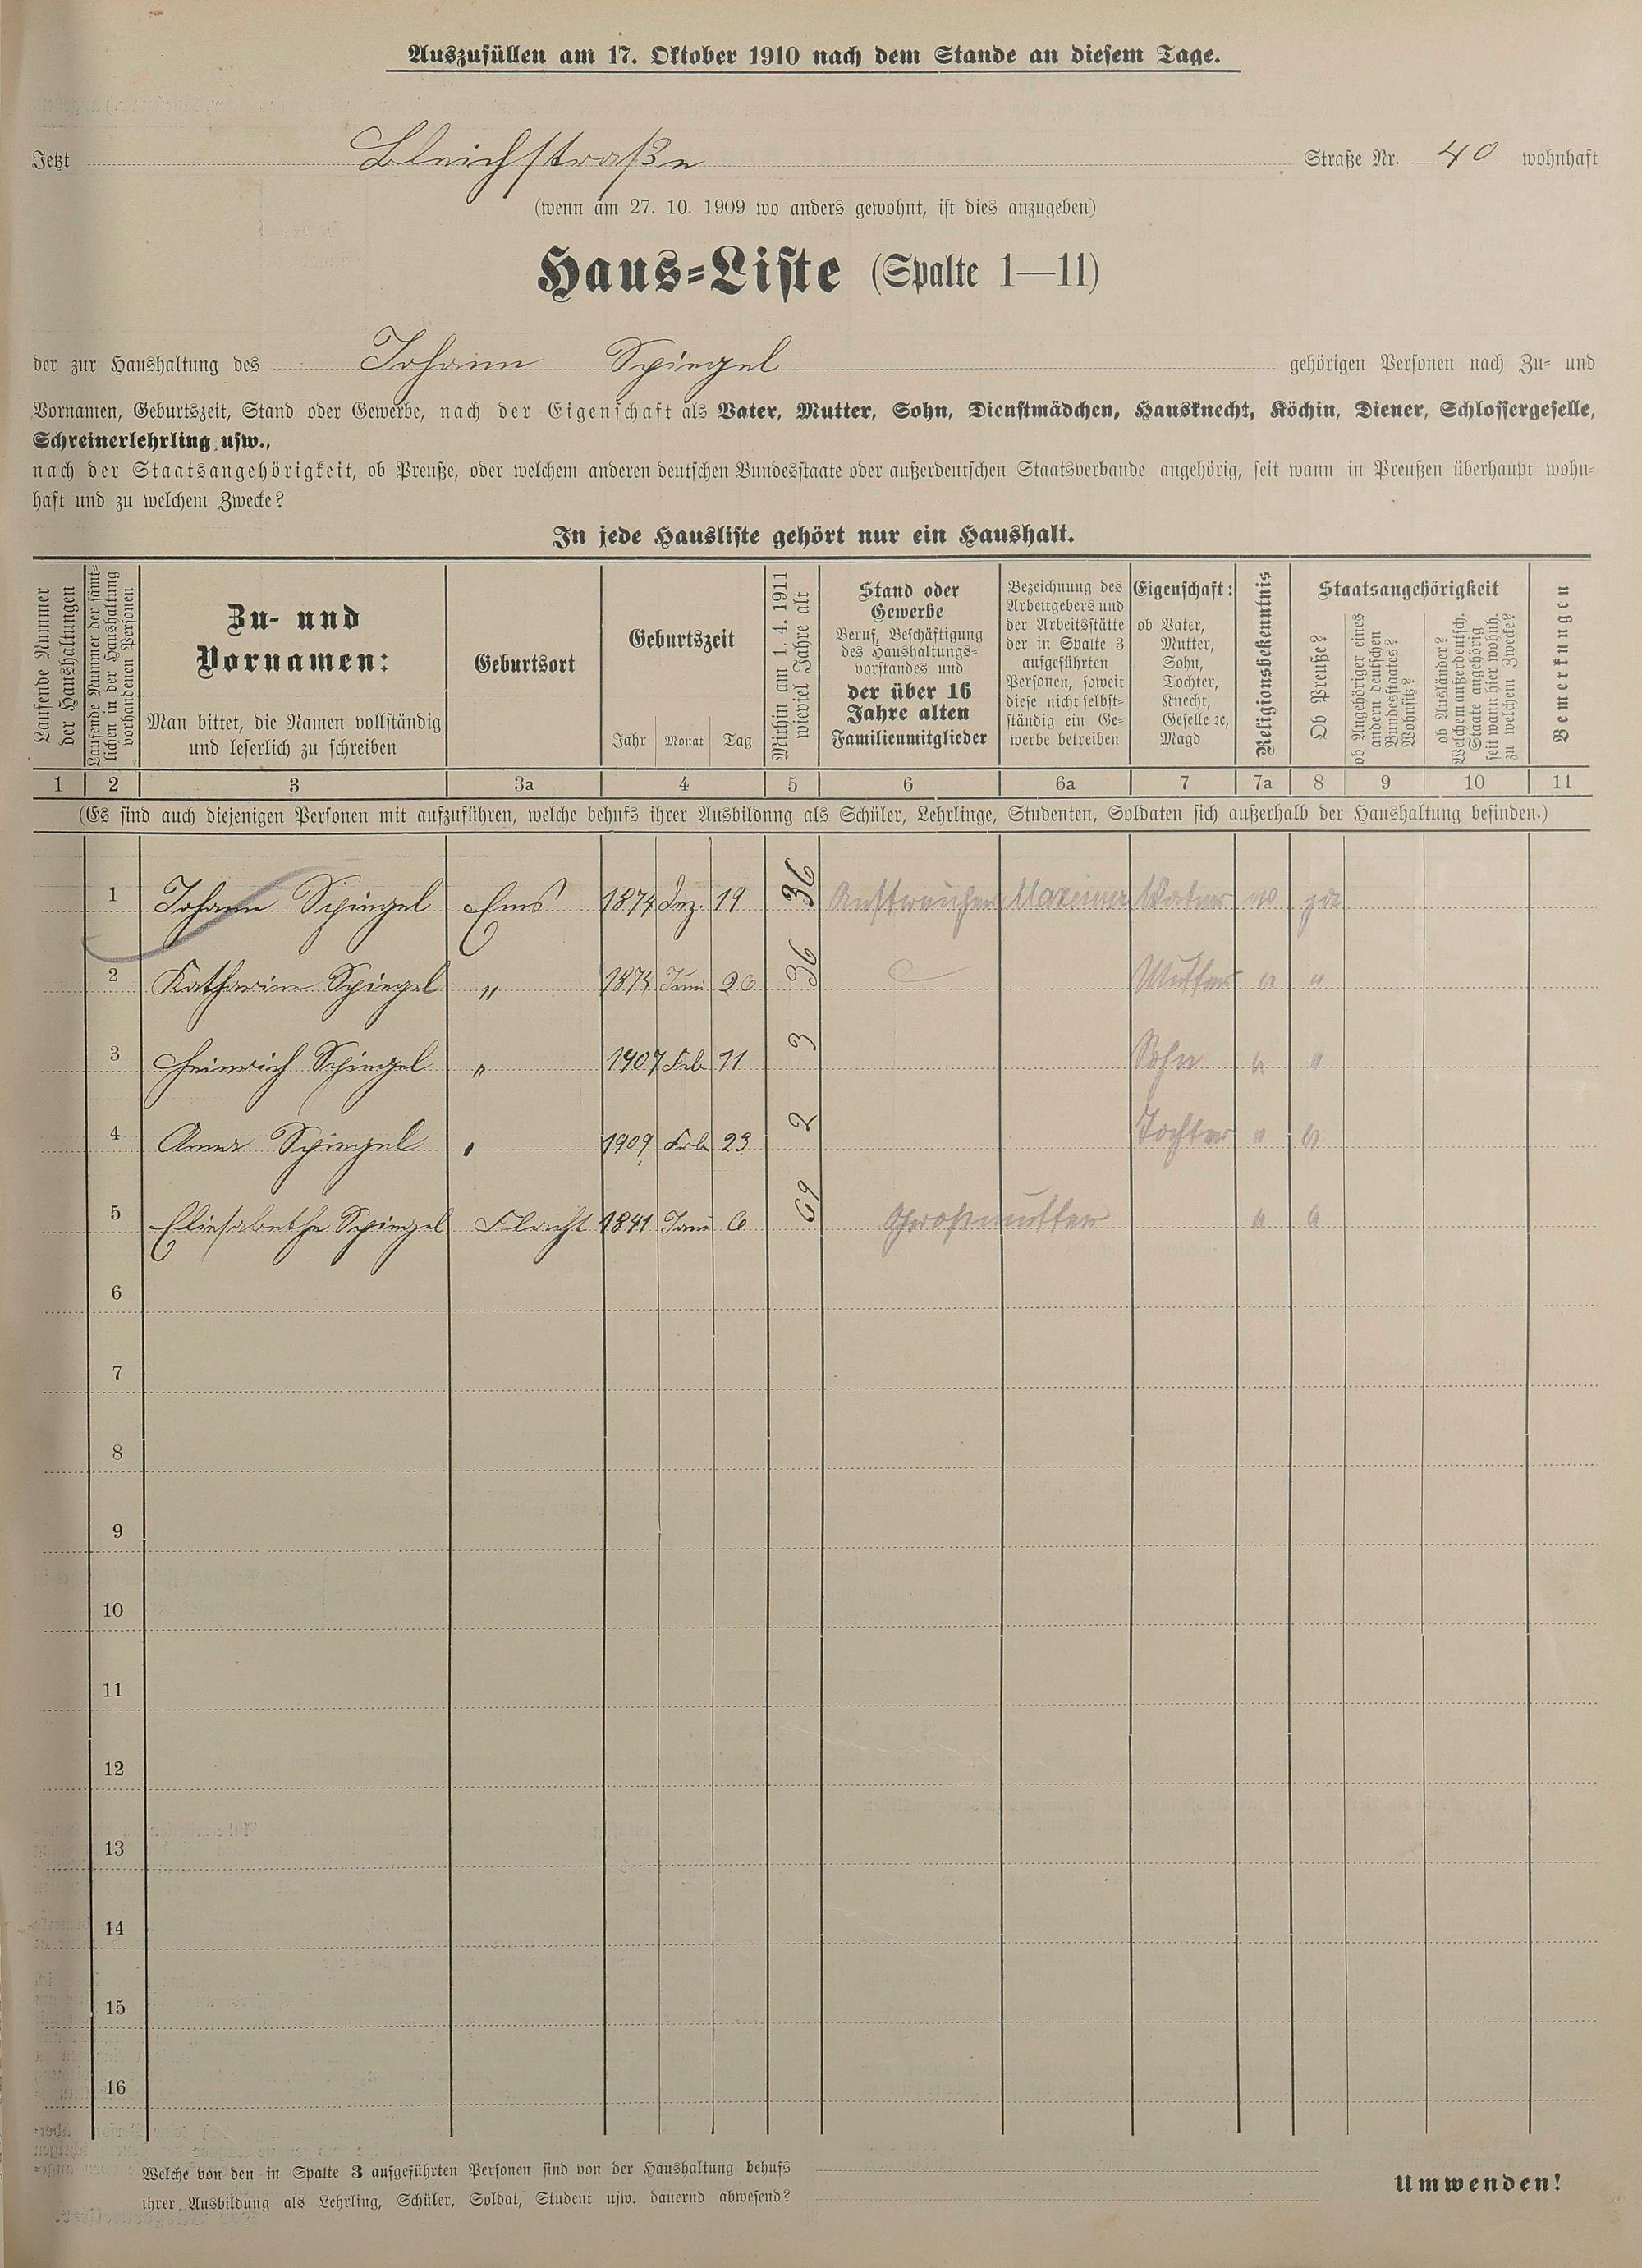 Auszufüllen am 17. Oktober 1910 nach dem Stande an diesem Tage.
Jetzt Bleichstraße Straße Nr. 40 wohnhaft
(wenn am 27. 10. 1909 wo anders gewohnt, ist dies anzugeben)
Haus-Liste (Spalte 1—11)
der zur Haushaltung des Johann Spiegel gehörigen Personen nach Zu- und
Vornamen, Geburtszeit, Stand oder Gewerbe, nach der Eigenschaft als Vater, Mutter, Sohn, Dienstmädchen, Hausknecht, Köchin, Diener, Schlossergeselle,
Schreinerlehrling usw.,
nach der Staatsangehörigkeit, ob Preuße, oder welchem anderen deutschen Bundesstaate oder außerdeutschen Staatsverbande angehörig, seit wann in Preußen überhaupt wohn-
haft und zu welchem Zwecke?
In jede Hausliste gehört nur ein Haushalt.
Laufende Nummer
der Haushaltungen
Laufende Nummer der sämt-
lichen in der Haushaltung
vorhandenen Personen
Zu- und
Vornamen:
Man bittet, die Namen vollständig
und leserlich zu schreiben
Geburtsort
Geburtszeit
Jahr Monat Tag
Mithin am 1. 4. 1911
wieviel Jahre alt
Stand oder
Gewerbe
Beruf, Beschäftigung
des Haushaltungs-
vorstandes und
der über 16
Jahre alten
Familienmitglieder
Bezeichnung des
Arbeitgebers und
der Arbeitsstätte
der in Spalte 3
aufgeführten
Personen, soweit
diese nicht selbst-
ständig ein Ge-
werbe betreiben
Eigenschaft:
ob Vater,
Mutter,
Sohn,
Tochter,
Knecht,
Geselle ꝛc,
Magd
Religionsbekenntnis
Staatsangehörigkeit
Ob Preuße?
ob Angehöriger eines
andern deutschen
Bundesstaates?
Wohnsitz?
ob Ausländer?
Welchem außerdeutsch.
Staate angehörig
seit wann hier wohnh.
zu welchem Zwecke?
Bemerkungen
1 2 3 3a 4 5 6 6a 7 7a 8 9 10 11
(Es sind auch diejenigen Personen mit aufzuführen, welche behufs ihrer Ausbildung als Schüler, Lehrlinge, Studenten, Soldaten sich außerhalb der Haushaltung befinden.)
1 Johann Spiegel Ems 1874 Dez. 19 36 Anstreicher Vater ja
2 Katharina Spiegel " 1874 Juni 26 36 Mutter " "
3 Heinrich Spiegel " 1907 Feb 11 3 Sohn " "
4 Anna Spiegel " 1909 Feb 23 2 Tochter " "
5 Eliesabethe Spiegel Flacht 1841 6 69 Großmutter " "
6
7
8
9
10
11
12
13
14
15
16
Welche von den in Spalte 3 aufgeführten Personen sind von der Haushaltung behufs
ihrer Ausbildung als Lehrling, Schüler, Soldat, Student usw. dauernd abwesend?
Umwenden!